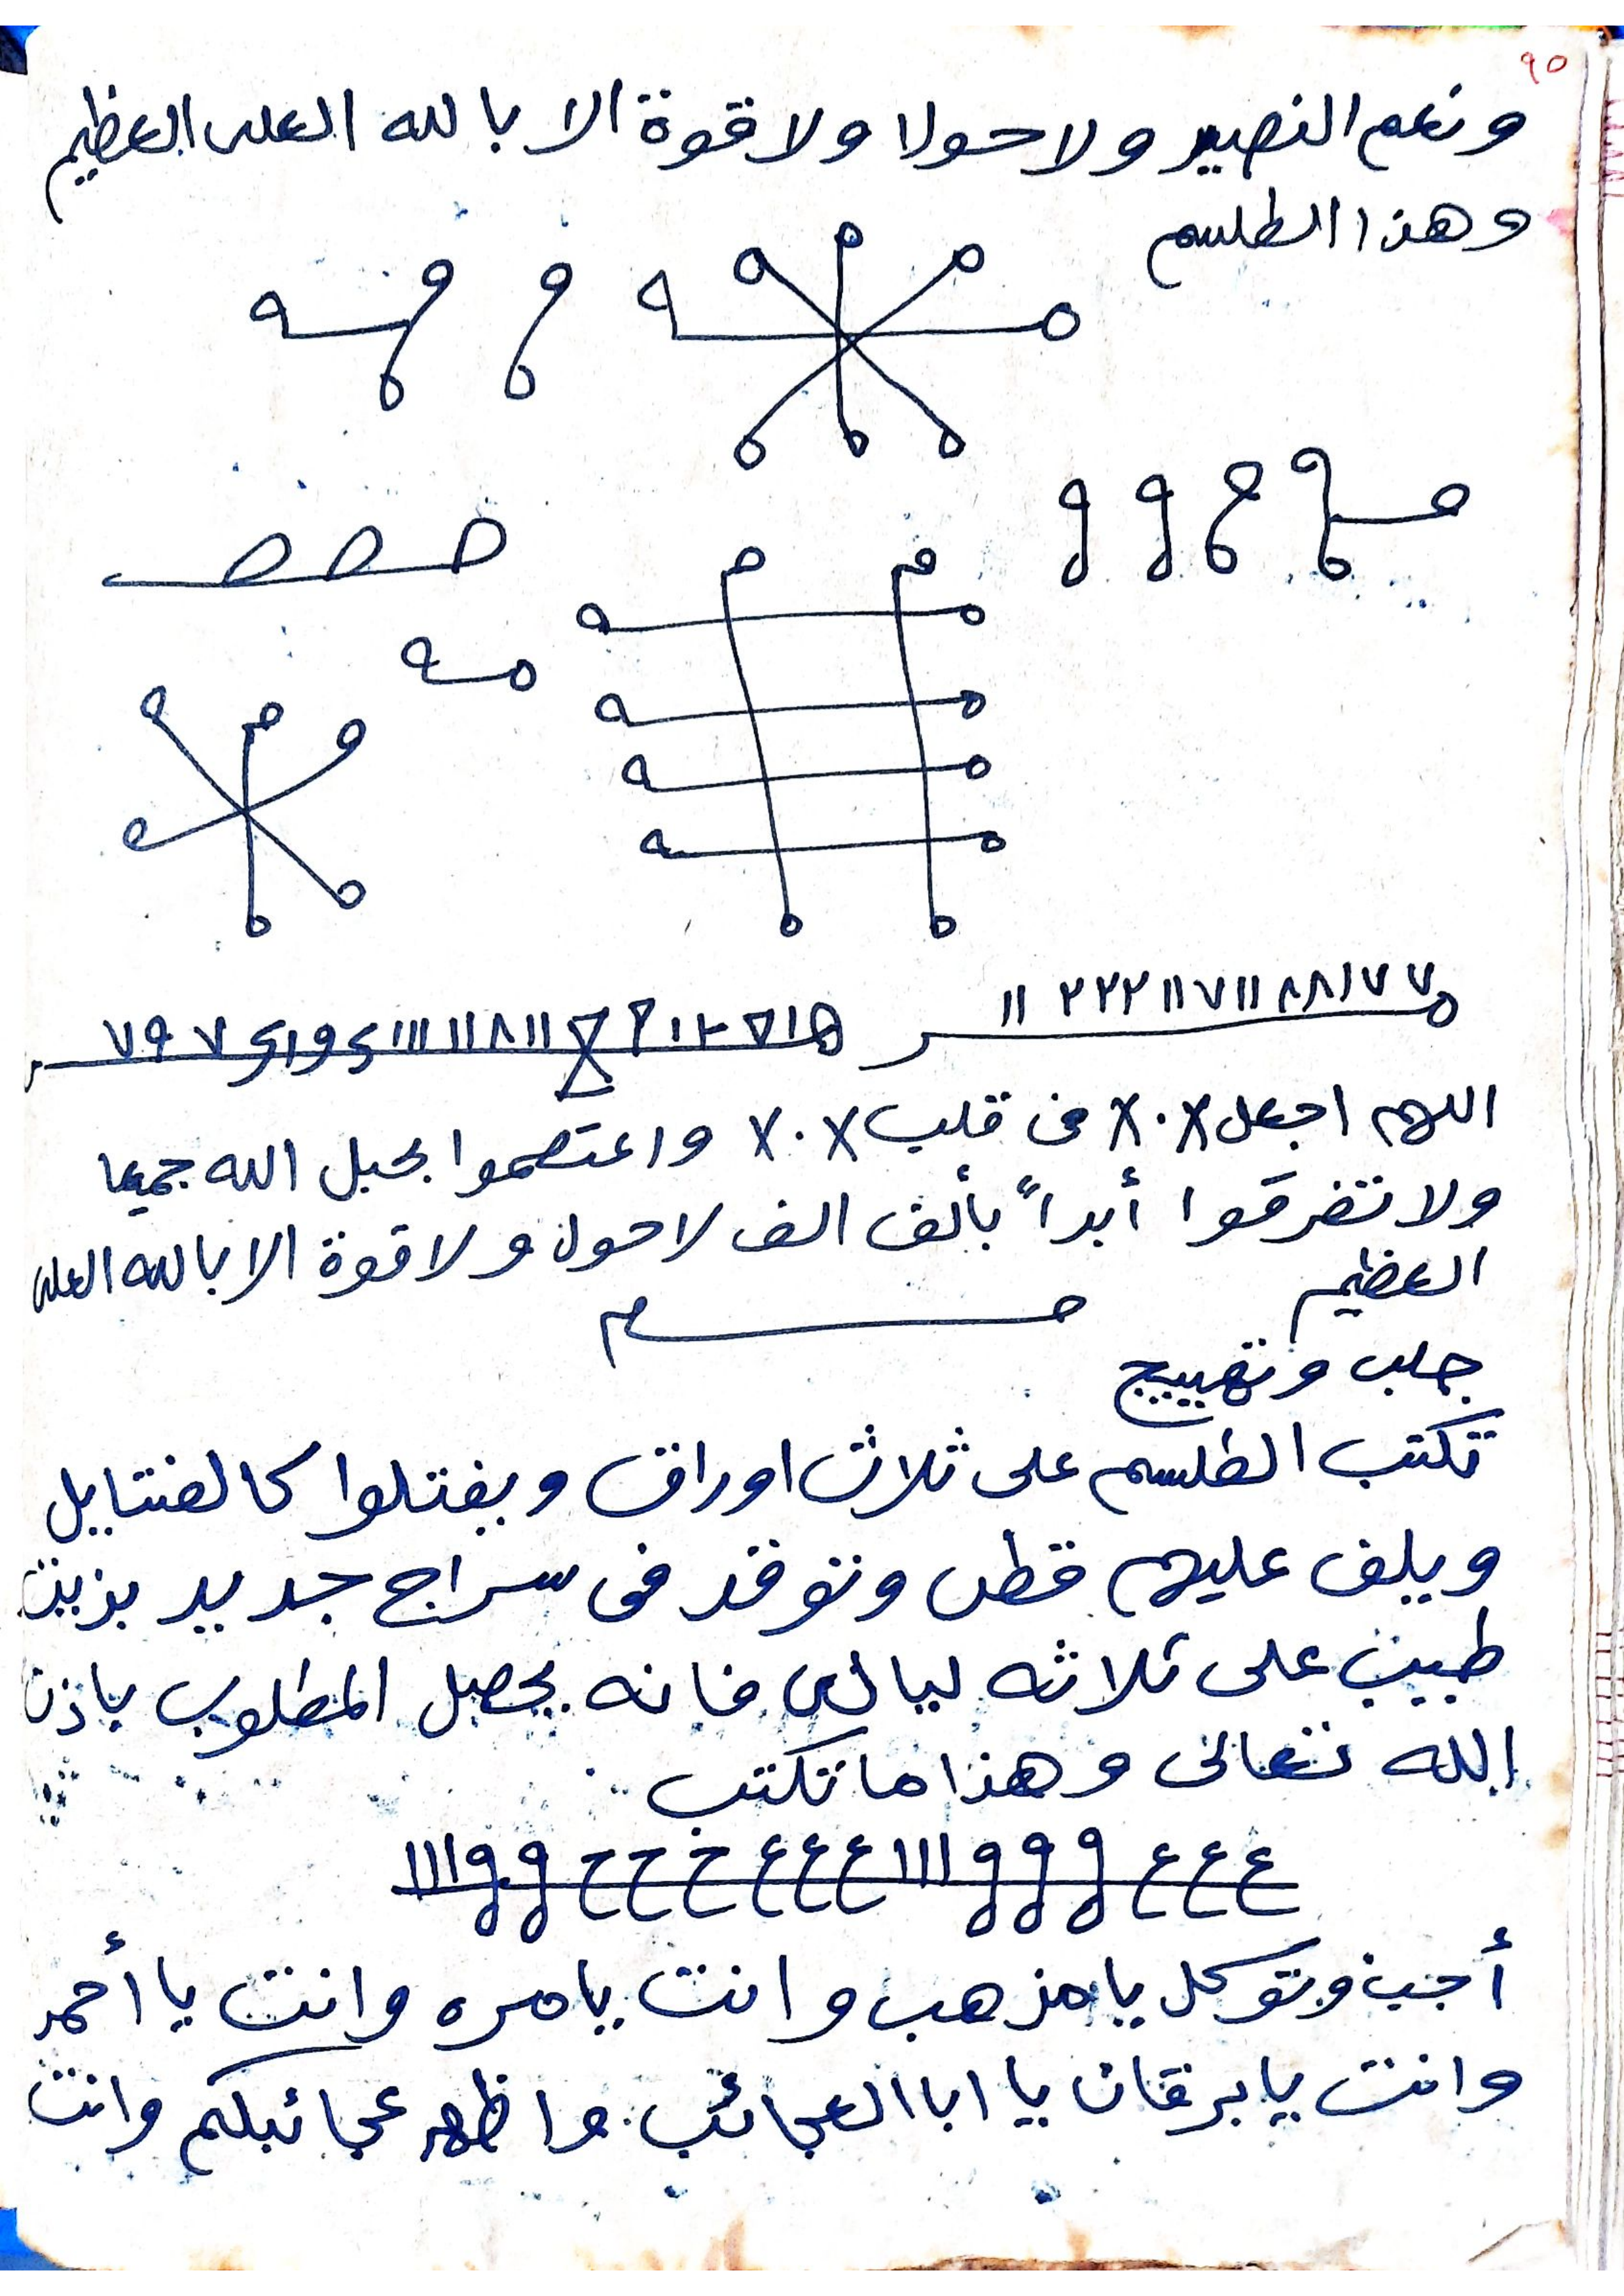 ٩٥
ونعم النصير ولا حولا ولا قوة الا بالله العلى العظيم
وهذا الطلسم
اا ٢٢٢ اا ٧ اا ٨٨ا٧٧
اللهم اجعل X.X فى قلب X.X واعتصموا بحبل الله جميعا
ولا تتفرقوا أبداً بألف الف لا حول ولا قوة الا بالله العلى
العظيم
جلب وتهييج
تكتب الطلسم على ثلاث اوراق ويفتلوا كالفتايل
ويلف عليهم قطن وتوقد فى سراج جديد بزيت
طيب على ثلاثه ليالى فانه يحصل المطلوب باذن
الله تعالى وهذا ما تكتب
ع ع ع ووو ااا ع ع ع خ ح ح وو ااا
أجب وتوكل يا مذهب وانت يا مره وانت يا أحمر
وانت يا برقان يا ابا العجائب واظهر عجائبكم وانت